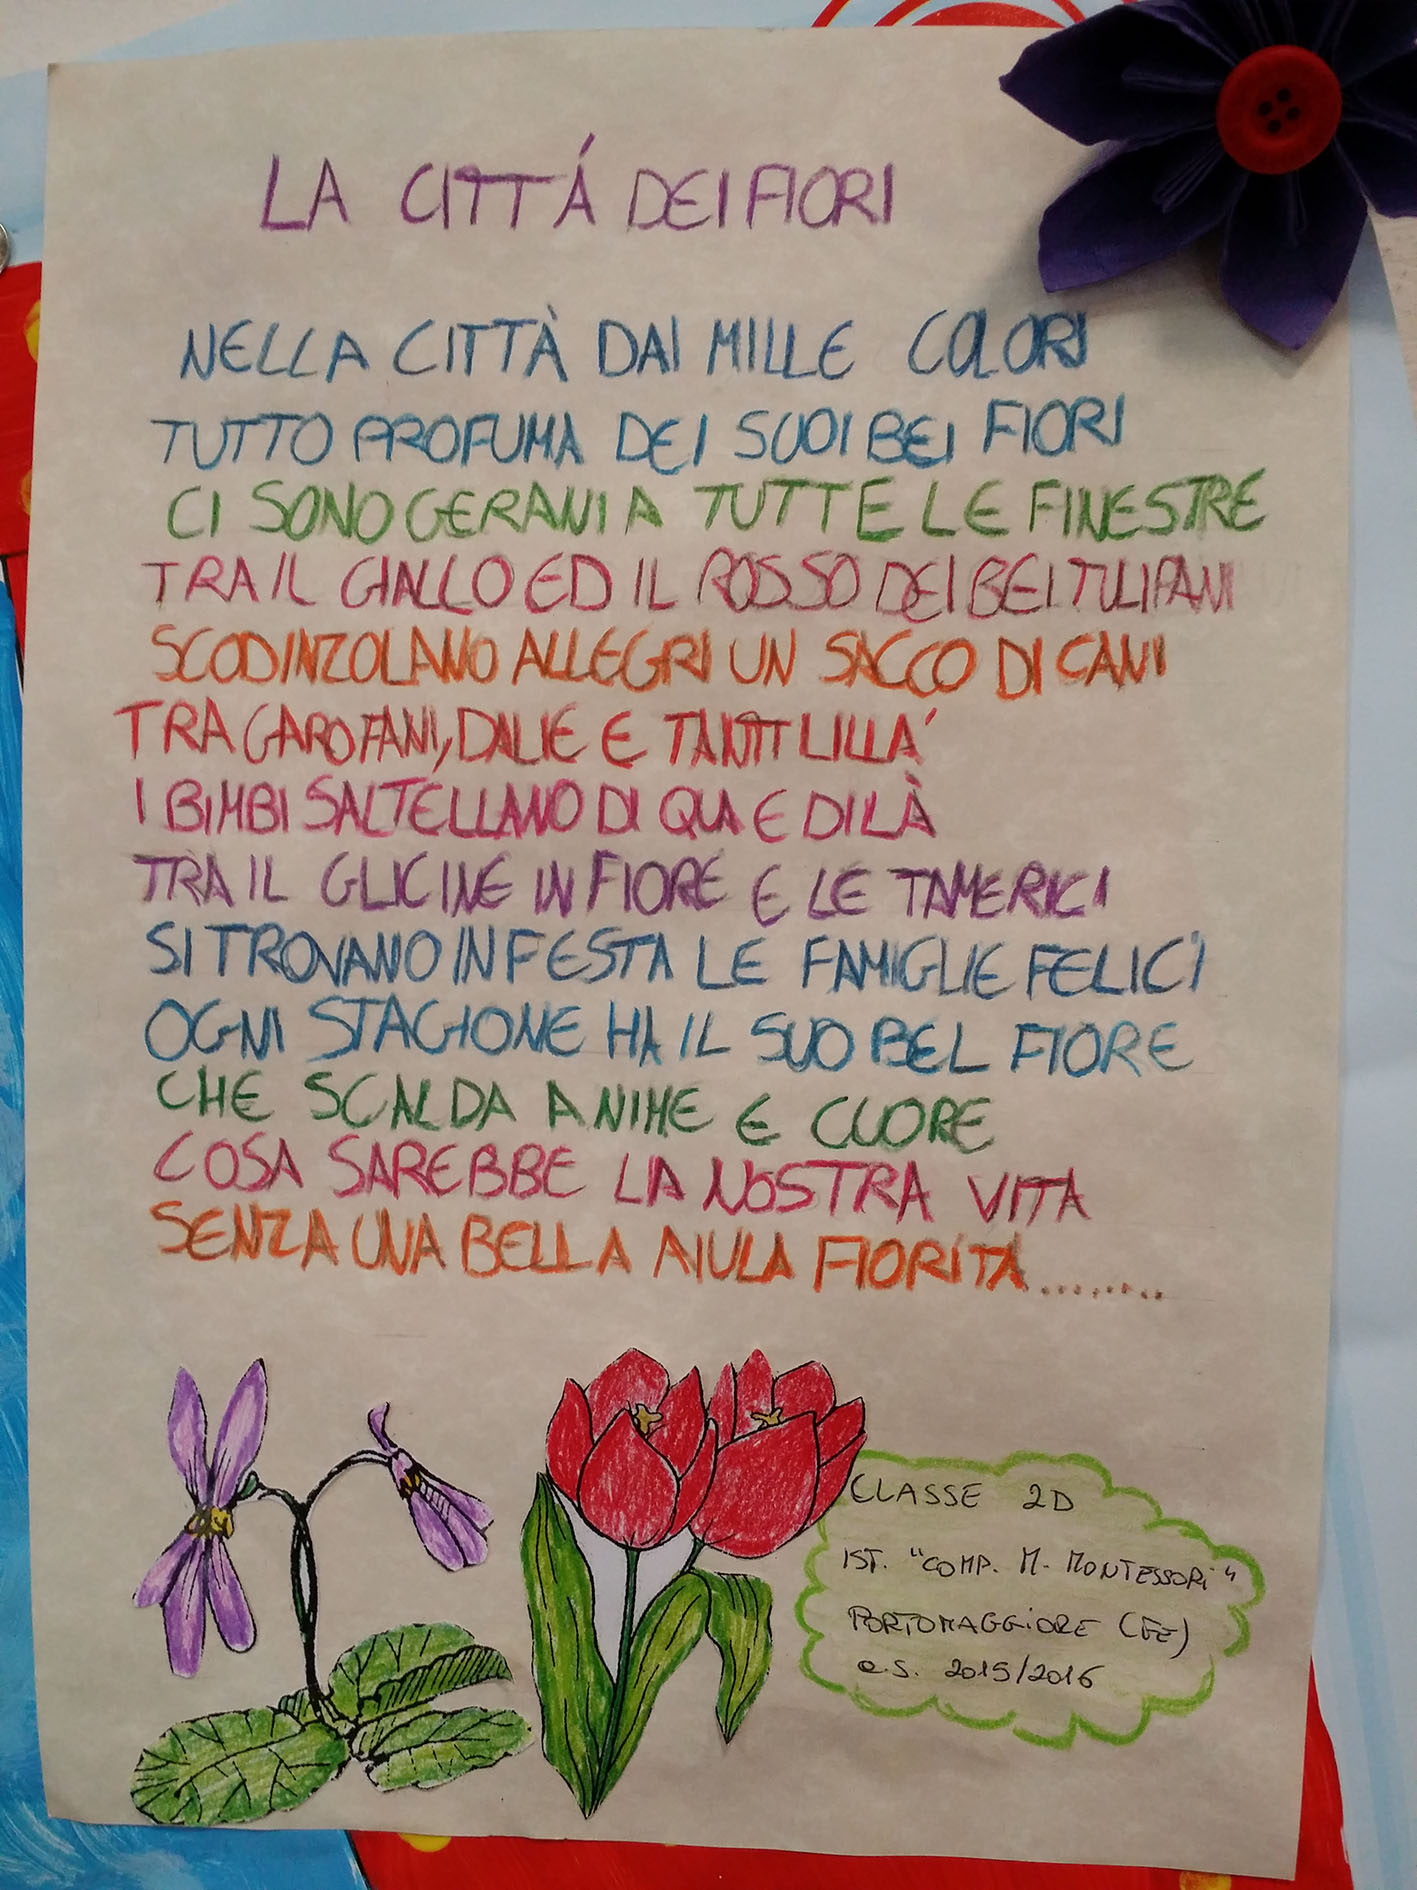 LA CITTÁ DEI FIORI
NELLA CITTÀ DAI MILLE COLORI
TUTTO PROFUMA DEI SUOI BEI FIORI
CI SONO GERANI A TUTTE LE FINESTRE
TRA IL GIALLO ED IL ROSSO DEI BEI TULIPANI
SCODINZOLANO ALLEGRI UN SACCO DI CANI
TRA GAROFANI, DALIE E TANTI LILLA'
I BIMBI SALTELLANO DI QUA E DI LÀ
TRA IL GLICINE IN FIORE E LE TAMERICI
SI TROVANO IN FESTA LE FAMIGLIE FELICI
OGNI STAGIONE HA IL SUO BEL FIORE
CHE SCALDA ANIME E CUORE
COSA SAREBBE LA NOSTRA VITA
SENZA UNA BELLA AIULA FIORITA........
CLASSE 2D
IST. "COMP. M. MONTESSORI"
PORTOMAGGIORE (FE)
a.s. 2015/2016